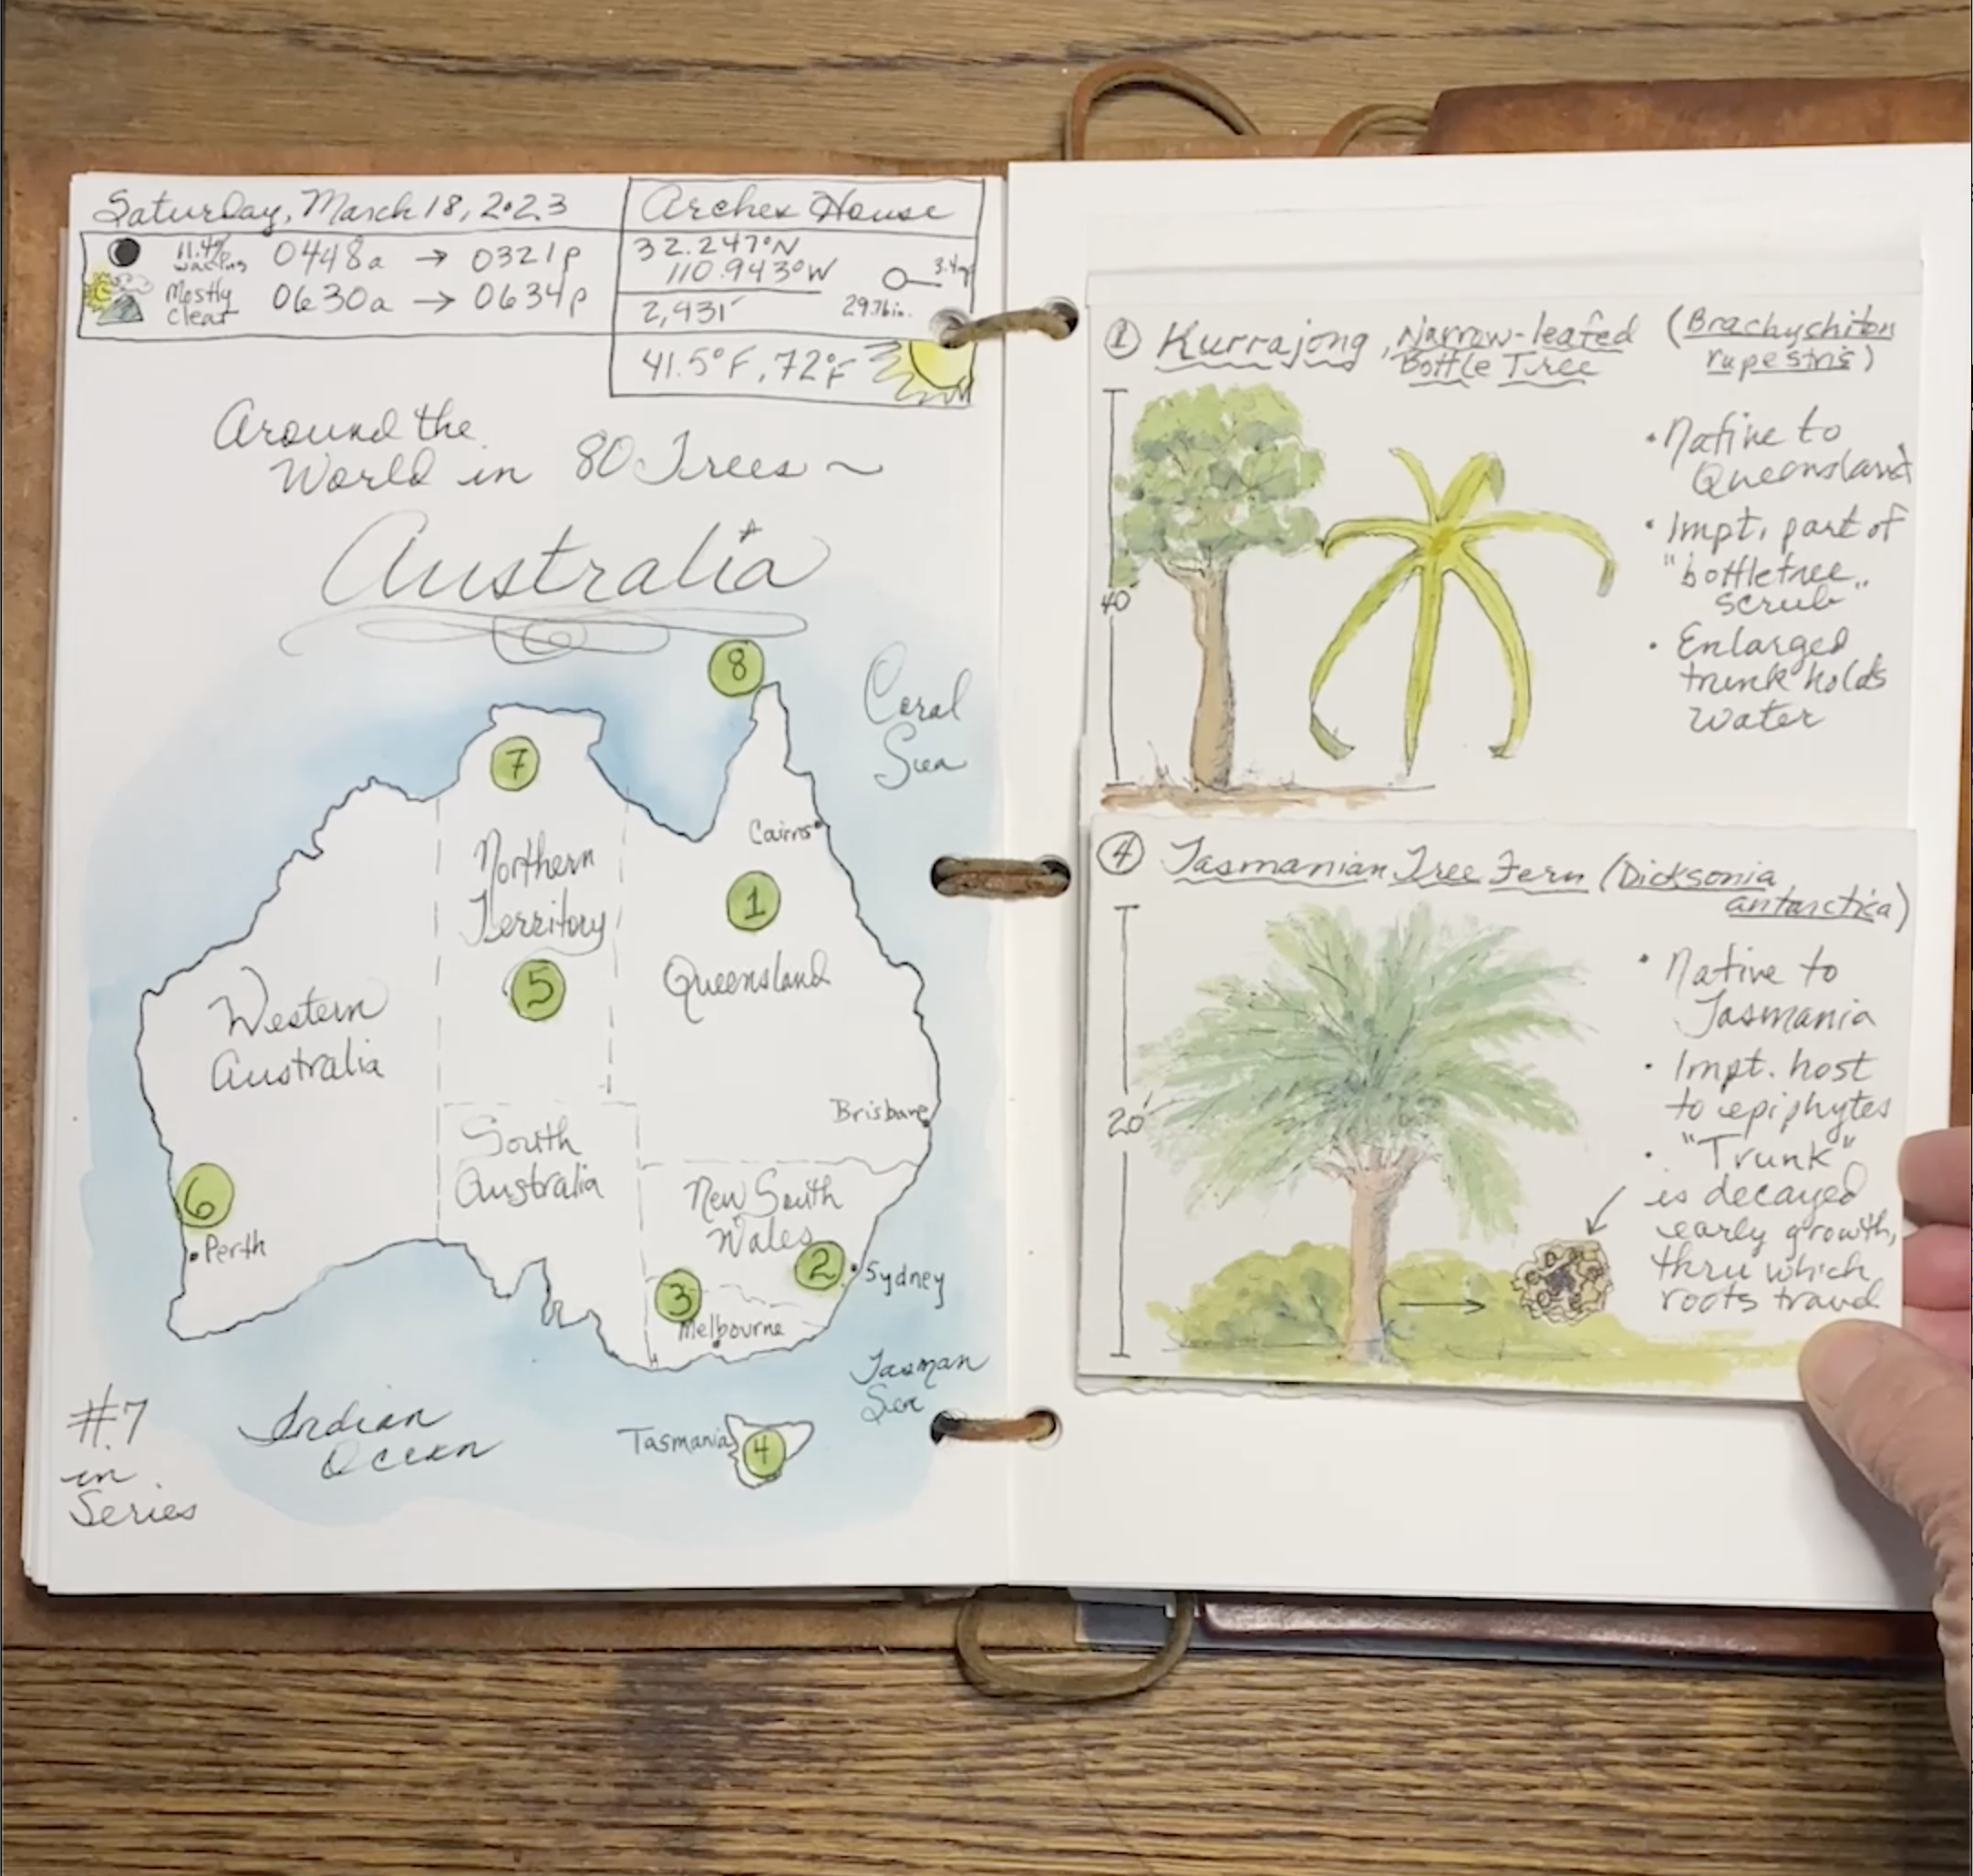 Saturday, March 18, 2023
11.4% waning 0448a → 0321p
Mostly clear 0630a → 0634p
Archex House
32.247°N
110.943°W
3.4m
2,431'
29.76in.
41.5°F, 72°F
Around the
World in 80 Trees ~
Australia
8
Coral
Sea
7
Cairns
Northern
Territory
1
5
Queensland
Western
Australia
Brisbane
South
Australia
New South
Wales
6
Perth
2
Sydney
3
Melbourne
Tasman
Sea
#7
in
Series
Indian
Ocean
Tasmania
4
1 Kurrajong, Narrow-leafed
Bottle Tree
(Brachychiton
rupestris)
40'
• Native to
Queensland
• Impt. part of
"bottletree
scrub"
• Enlarged
trunk holds
water
4 Tasmanian Tree Fern (Dicksonia
antarctica)
20'
• Native to
Tasmania
• Impt. host
to epiphytes
• "Trunk"
is decayed
early growth,
thru which
roots travel